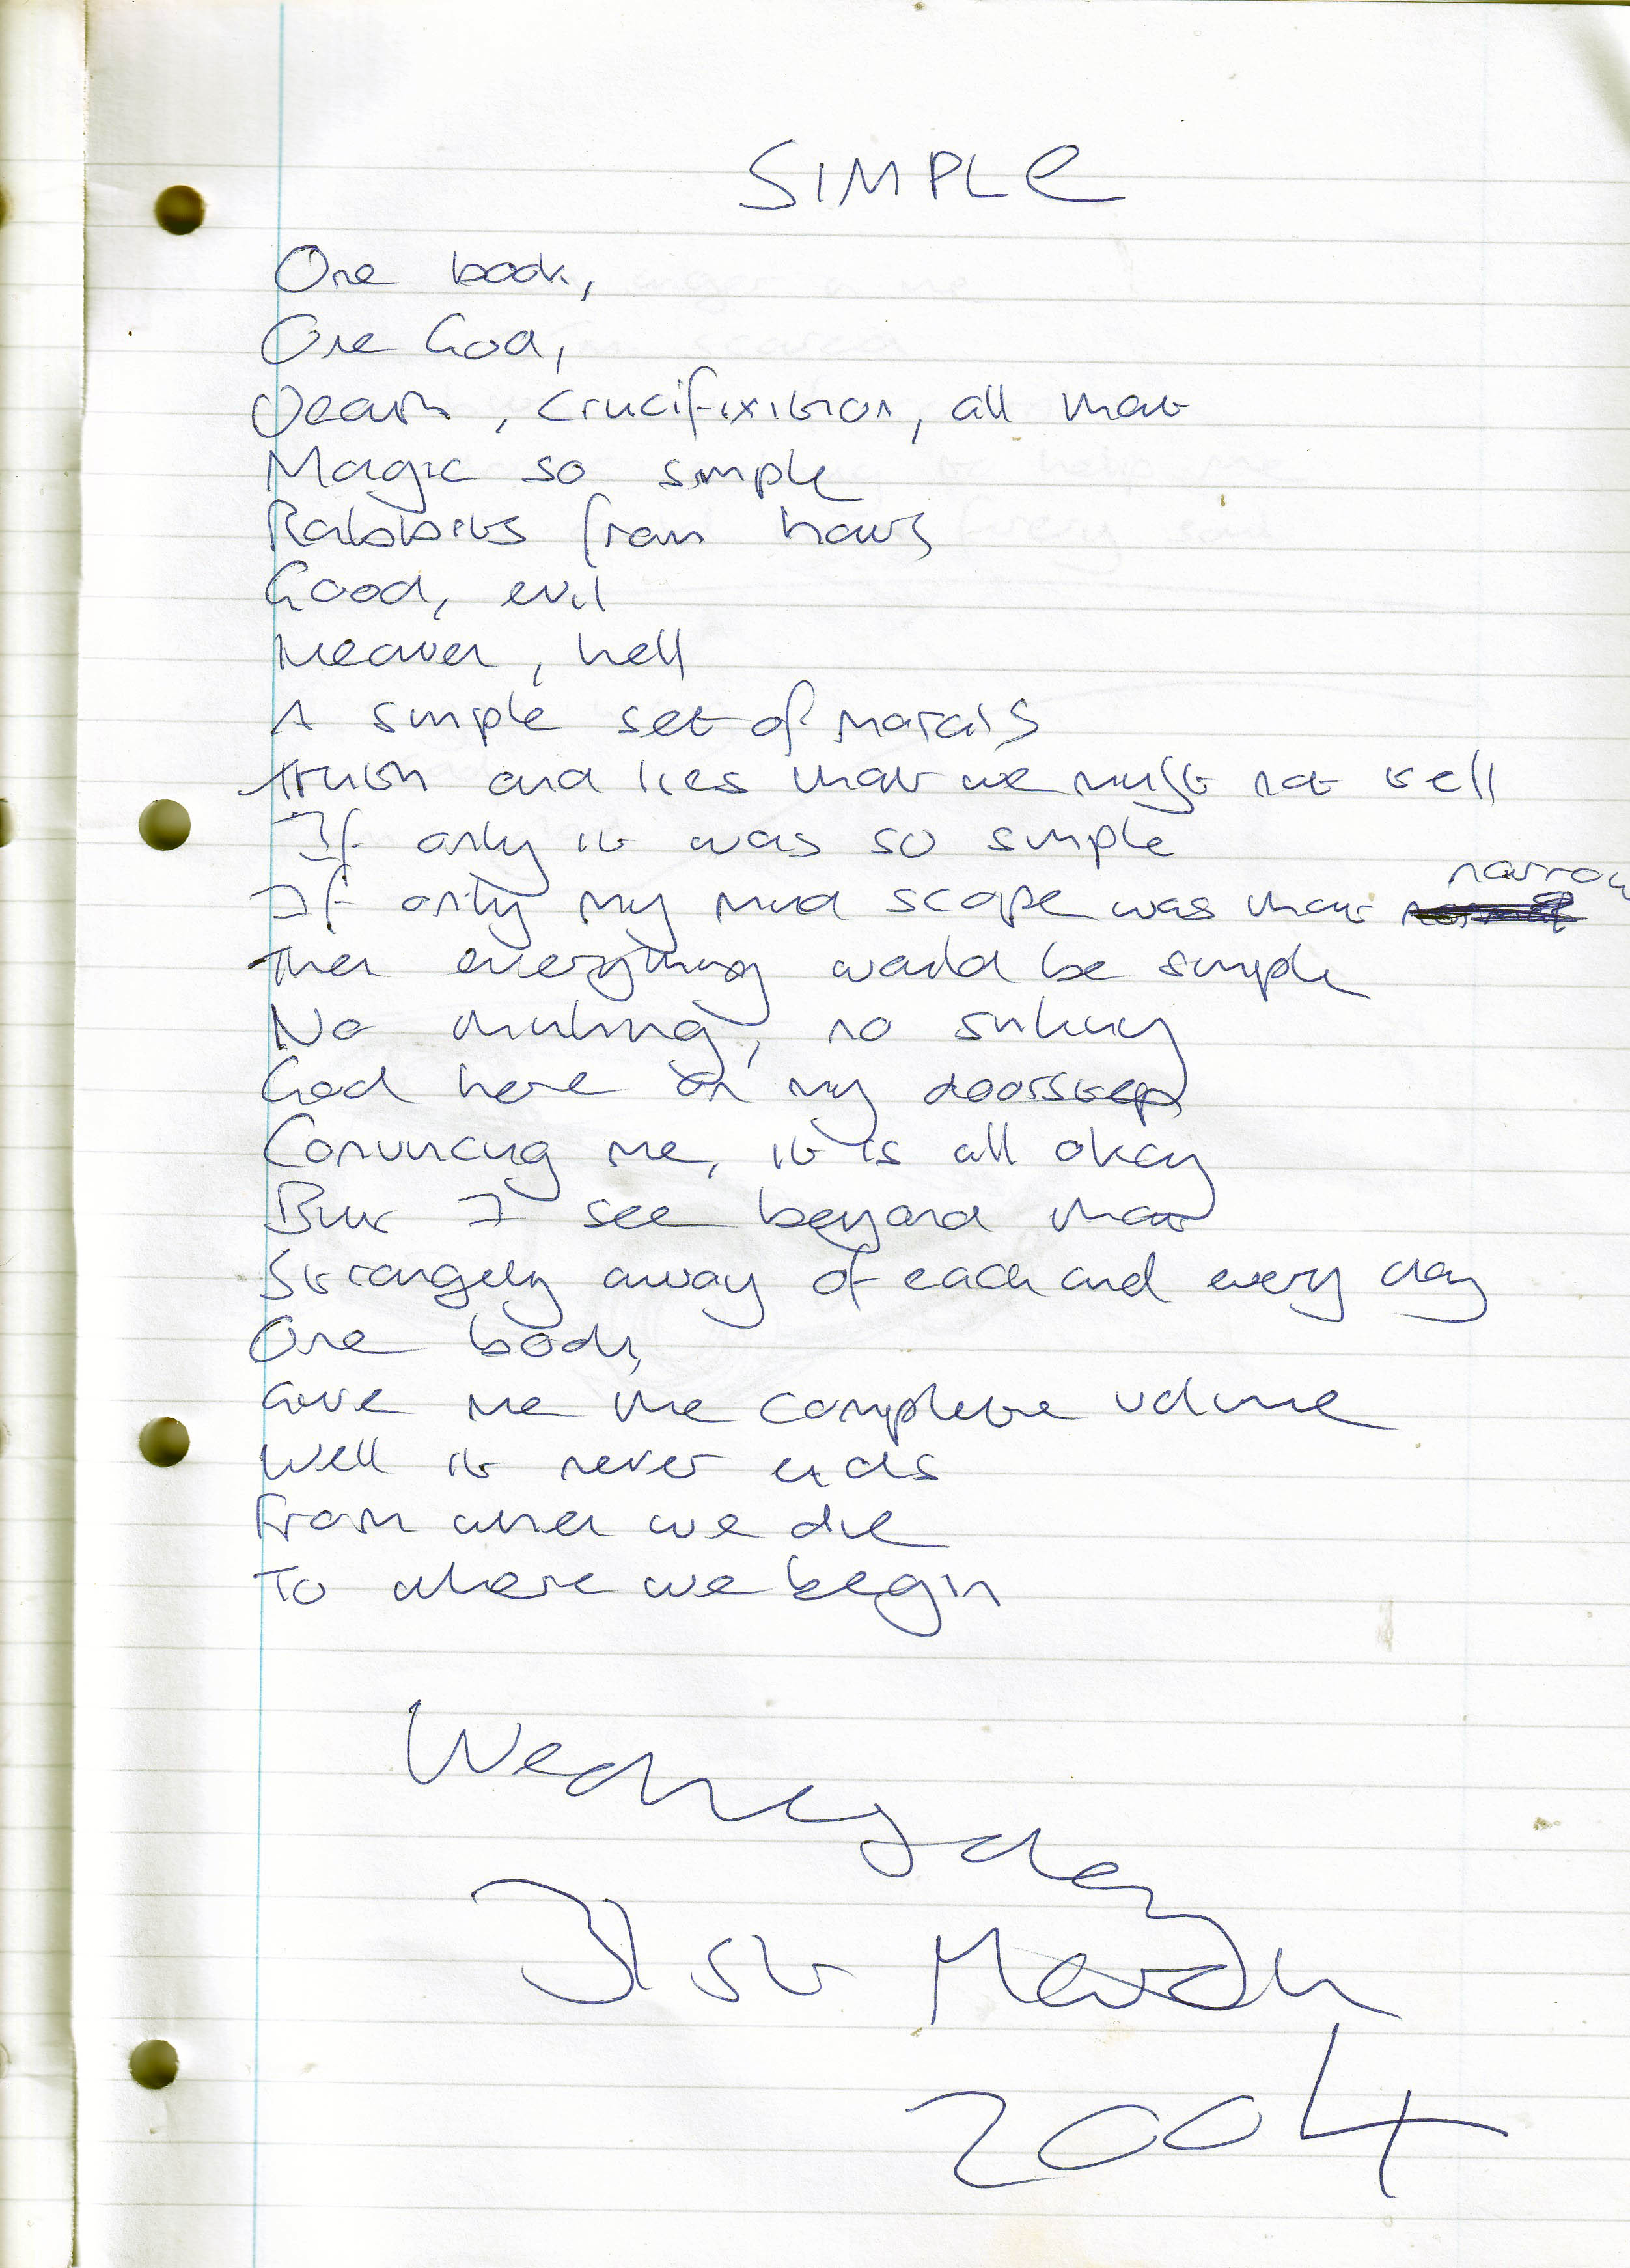 SIMPLE
One book,
One God,
Death, crucifixition, all that
Magic so simple
Rabbits from hats
Good, evil
Heaven, hell
A simple set of morals
Truth and lies that we must not tell
If only it was so simple
If only my mind scope was that narrow
Then everything would be simple
No thinking, no sinking
God here on my doorstep
Convincing me, it is all okay
But I see beyond that
Strangely away of each and every day
One book,
Give me the complete volume
Well it never ends
From when we die
To where we begin
Wednesday
31st March
2004